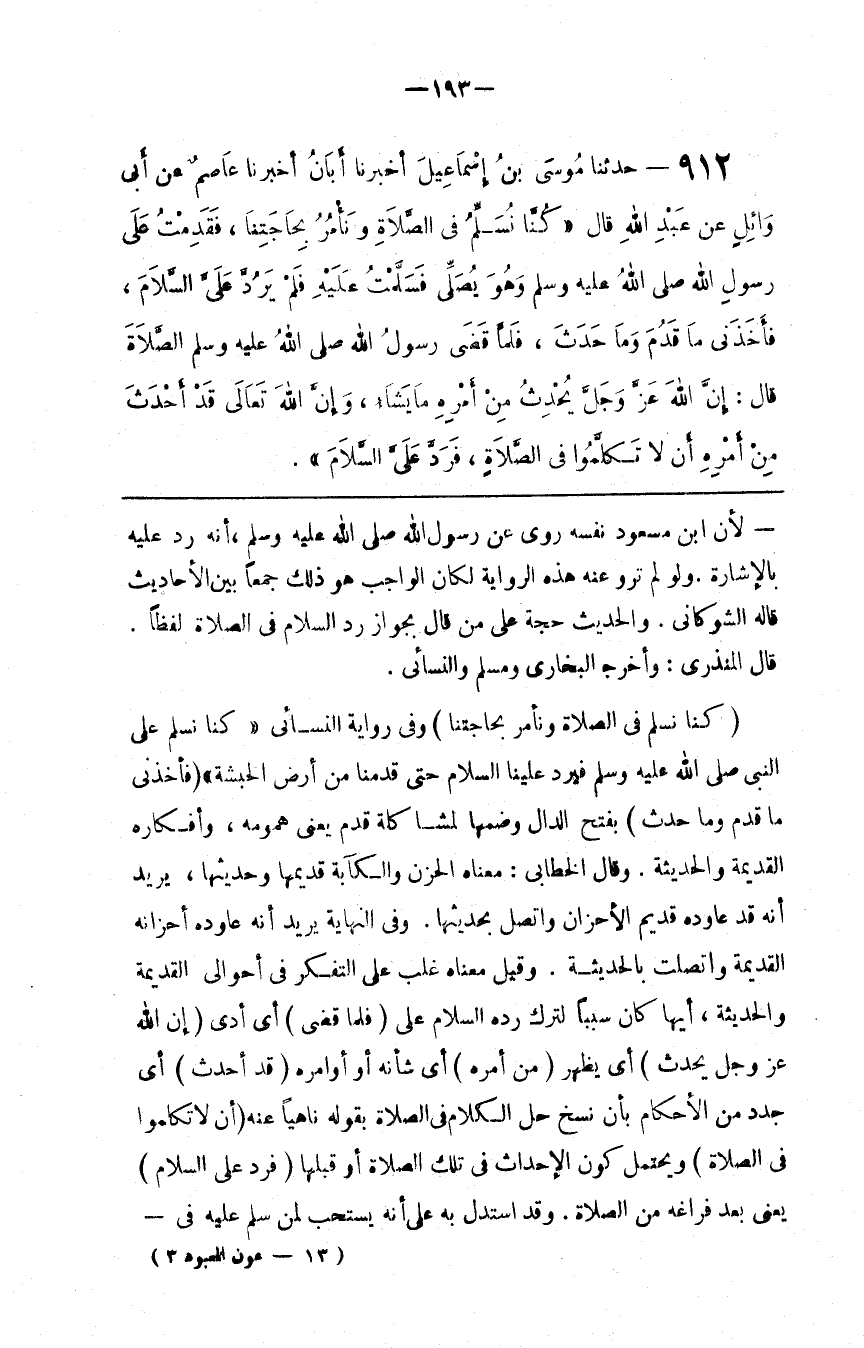 —١٩٣—
٩١٢ — حدثنا مُوسَى بنُ إِسْمَاعِيلَ أخبرنا أَبَانُ أخبرنا عَاصِمٌ عن أَبى
وَائِلٍ عن عَبْدِ اللهِ قال « كُنَّا نُسَـلِّمُ فى الصَّلَاةِ وَنَأْمُرُ بِحَاجَتِنَا ، فَقَدِمْتُ عَلَى
رسولِ الله صلى اللهُ عليه وسلم وَهُوَ يُصَلِّى فَسَلَّمْتُ عَلَيْهِ فَلَمْ يَرُدَّ عَلَىَّ السَّلَامَ ،
فأَخَذَنى مَا قَدُمَ وَمَا حَدَثَ ، فَلمَّا قَضَى رسولُ الله صلى اللهُ عليه وسلم الصَّلَاةَ
قال : إِنَّ اللهَ عَزَّ وَجَلَّ يُحْدِثُ مِنْ أَمْرِهِ مَايَشَاء ، وَإِنَّ اللهَ تَعَالَى قَدْ أَحْدَثَ
مِنْ أَمْرِهِ أن لا تَـكَلَّمُوا فى الصَّلَاةِ ، فَرَدَّ عَلَىَّ السَّلَامَ » .
— لأن ابن مسعود نفسه روى عن رسول الله صلى الله عليه وسلم ،أنه رد عليه
بالإشارة . ولو لم ترو عنه هذه الرواية لكان الواجب هو ذلك جمعاً بين الأحاديث
قاله الشوكانى . والحديث حجة على من قال بجواز رد السلام فى الصلاة لفظاً .
قال المنذرى : وأخرجه البخارى ومسلم والنسائى .
( كنا نسلم فى الصلاة ونأمر بحاجتنا ) وفى رواية النسـائى « كنا نسلم على
النبى صلى الله عليه وسلم فيرد علينا السلام حتى قدمنا من أرض الحبشة»(فأخذنى
ما قدم وما حدث ) بفتح الدال وضمها لمشـاكلة قدم يعنى همومه ، وأفـكاره
القديمة والحديثة . وقال الخطابى : معناه الحزن والـكآبة قديمها وحديثها ، يريد
أنه قد عاوده قديم الأحزان واتصل بحديثها . وفى النهاية يريد أنه عاوده أحزانه
القديمة واتصلت بالحديثـة . وقيل معناه غلب على التفـكر فى أحوالى القديمة
والحديثة ، أيها كان سبباً لترك رده السلام على ( فلما قضى ) أى أدى ( إن الله
عز وجل يحدث ) أى يظهر ( من أمره ) أى شأنه أو أوامره ( قد أحدث ) أى
جدد من الأحكام بأن نسخ حل الـكلام فى الصلاة بقوله ناهياً عنه(أن لاتكلموا
فى الصلاة ) ويحتمل كون الإحداث فى تلك الصلاة أو قبلها ( فرد على السلام )
يعنى بعد فراغه من الصلاة . وقد استدل به على أنه يستحب لمن سلم عليه فى —
( ١٣ — عون المعبود ٣ )